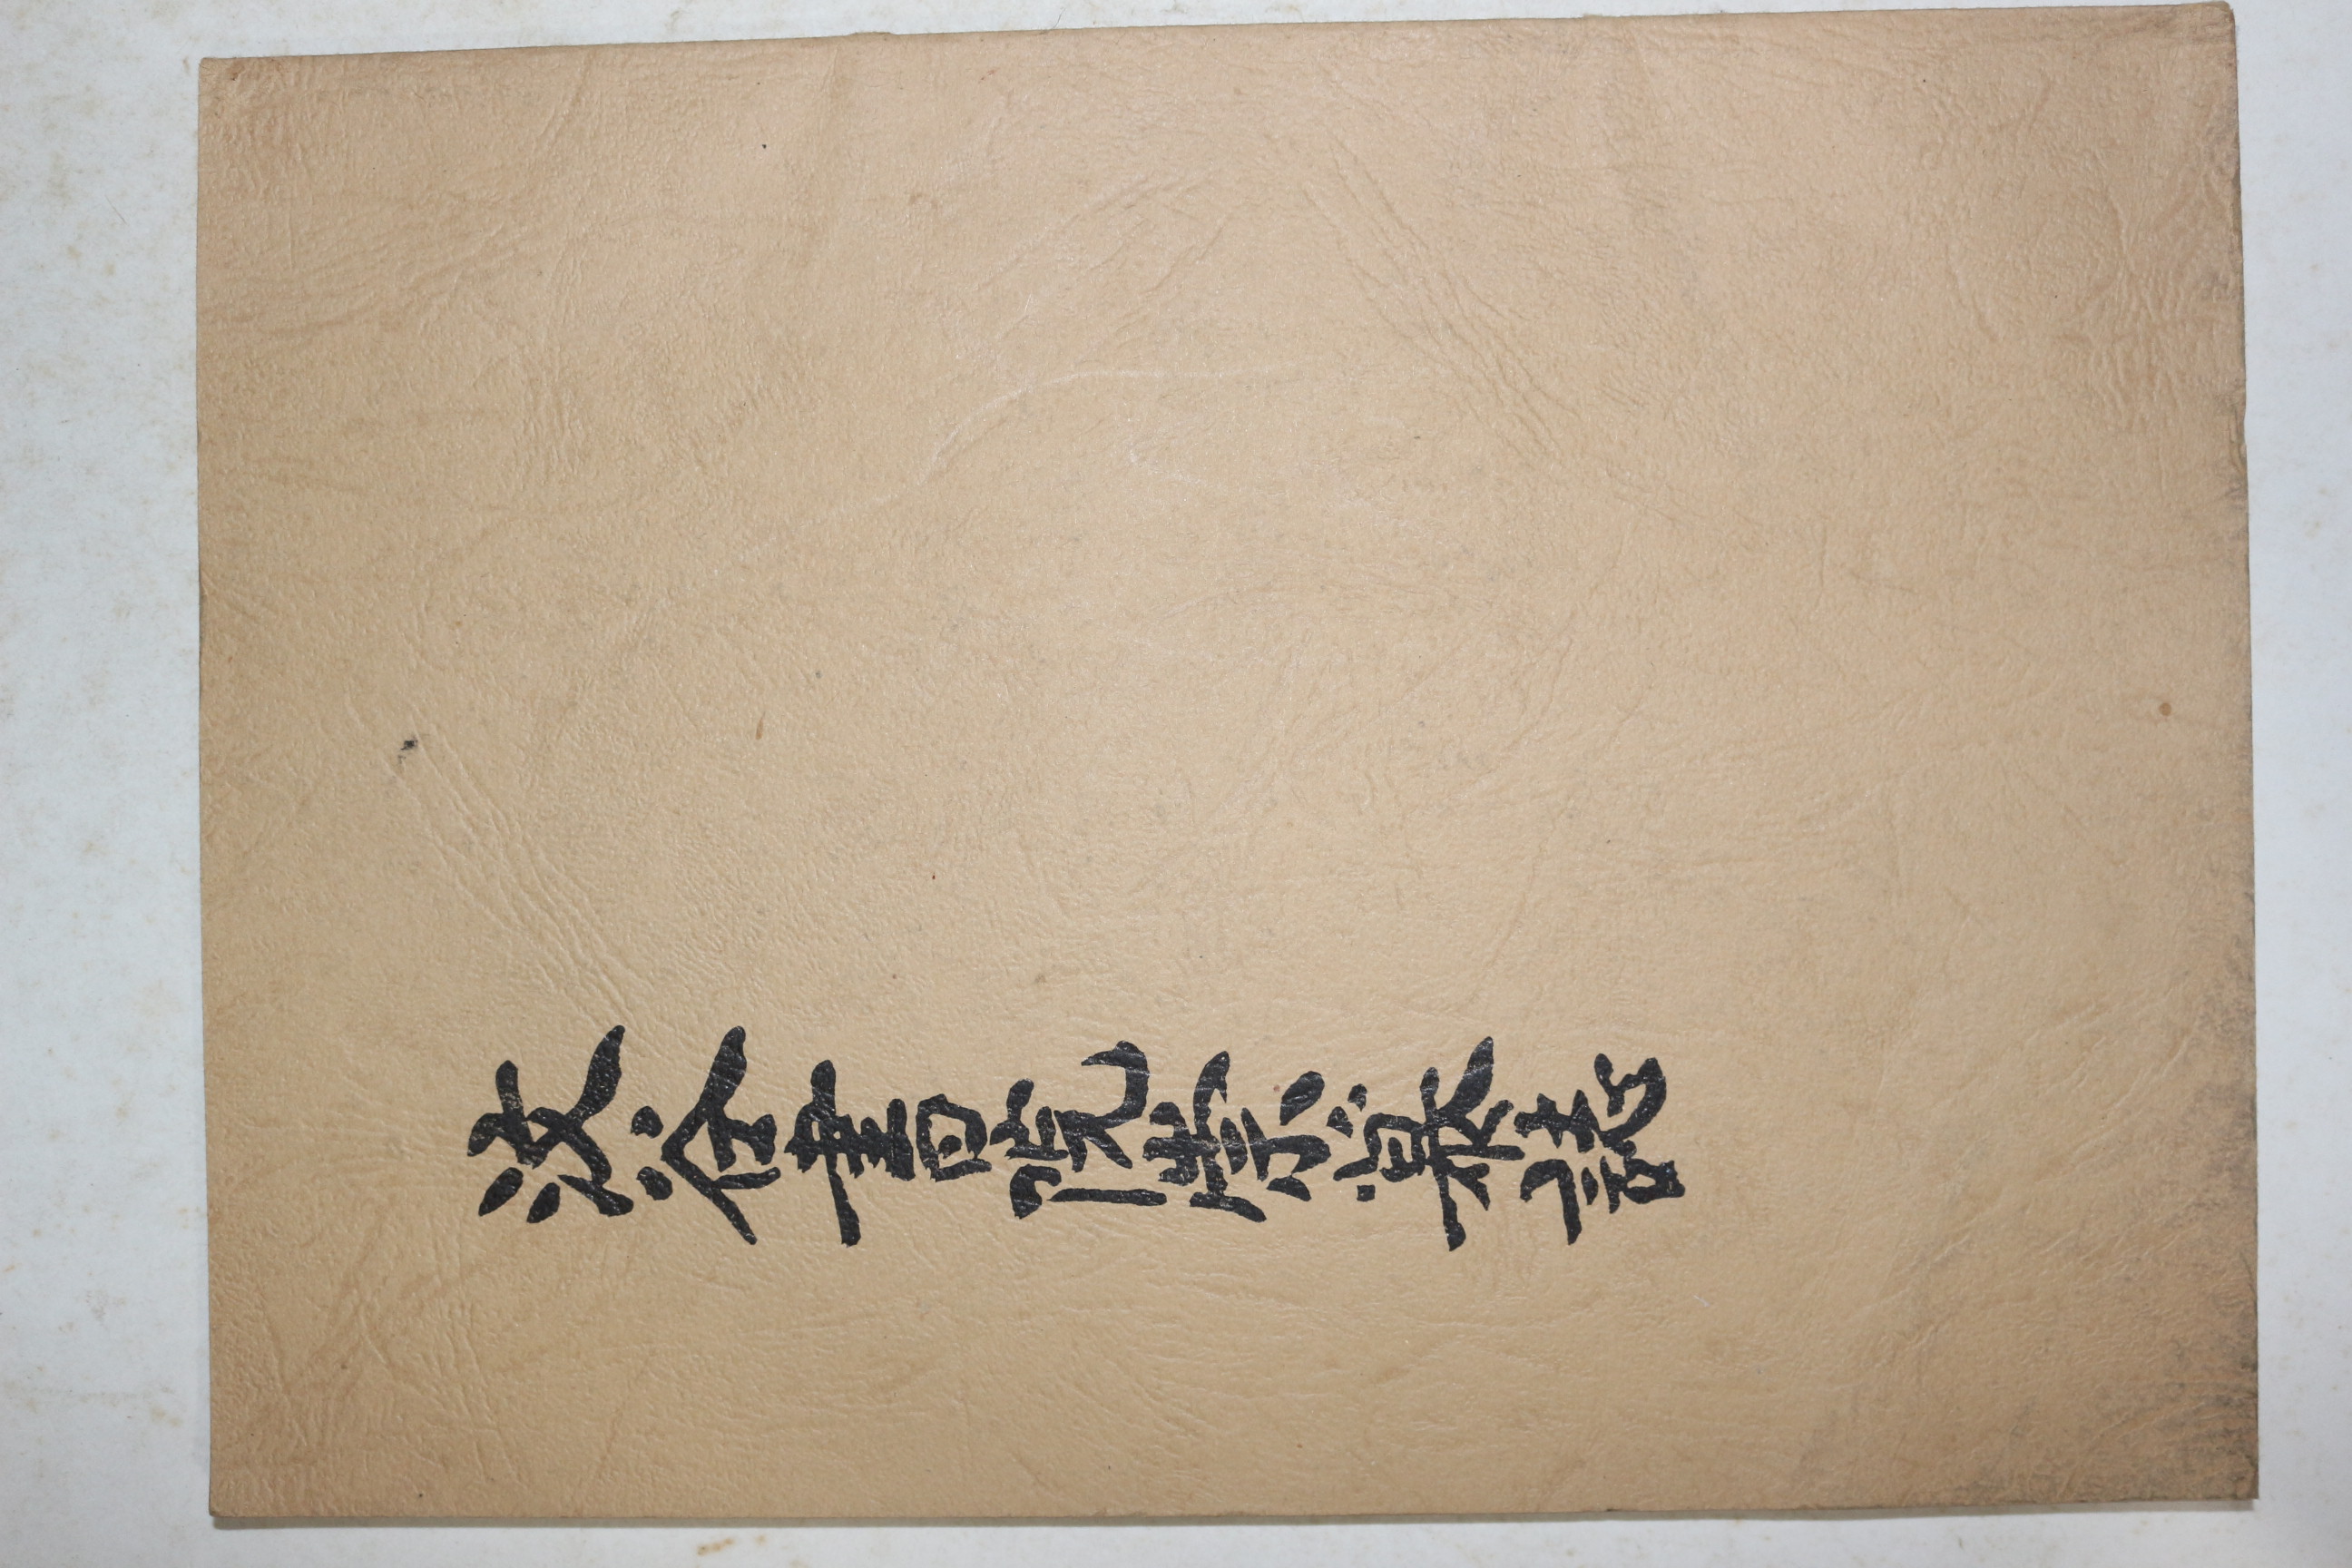 汶谷書院崇慕誌